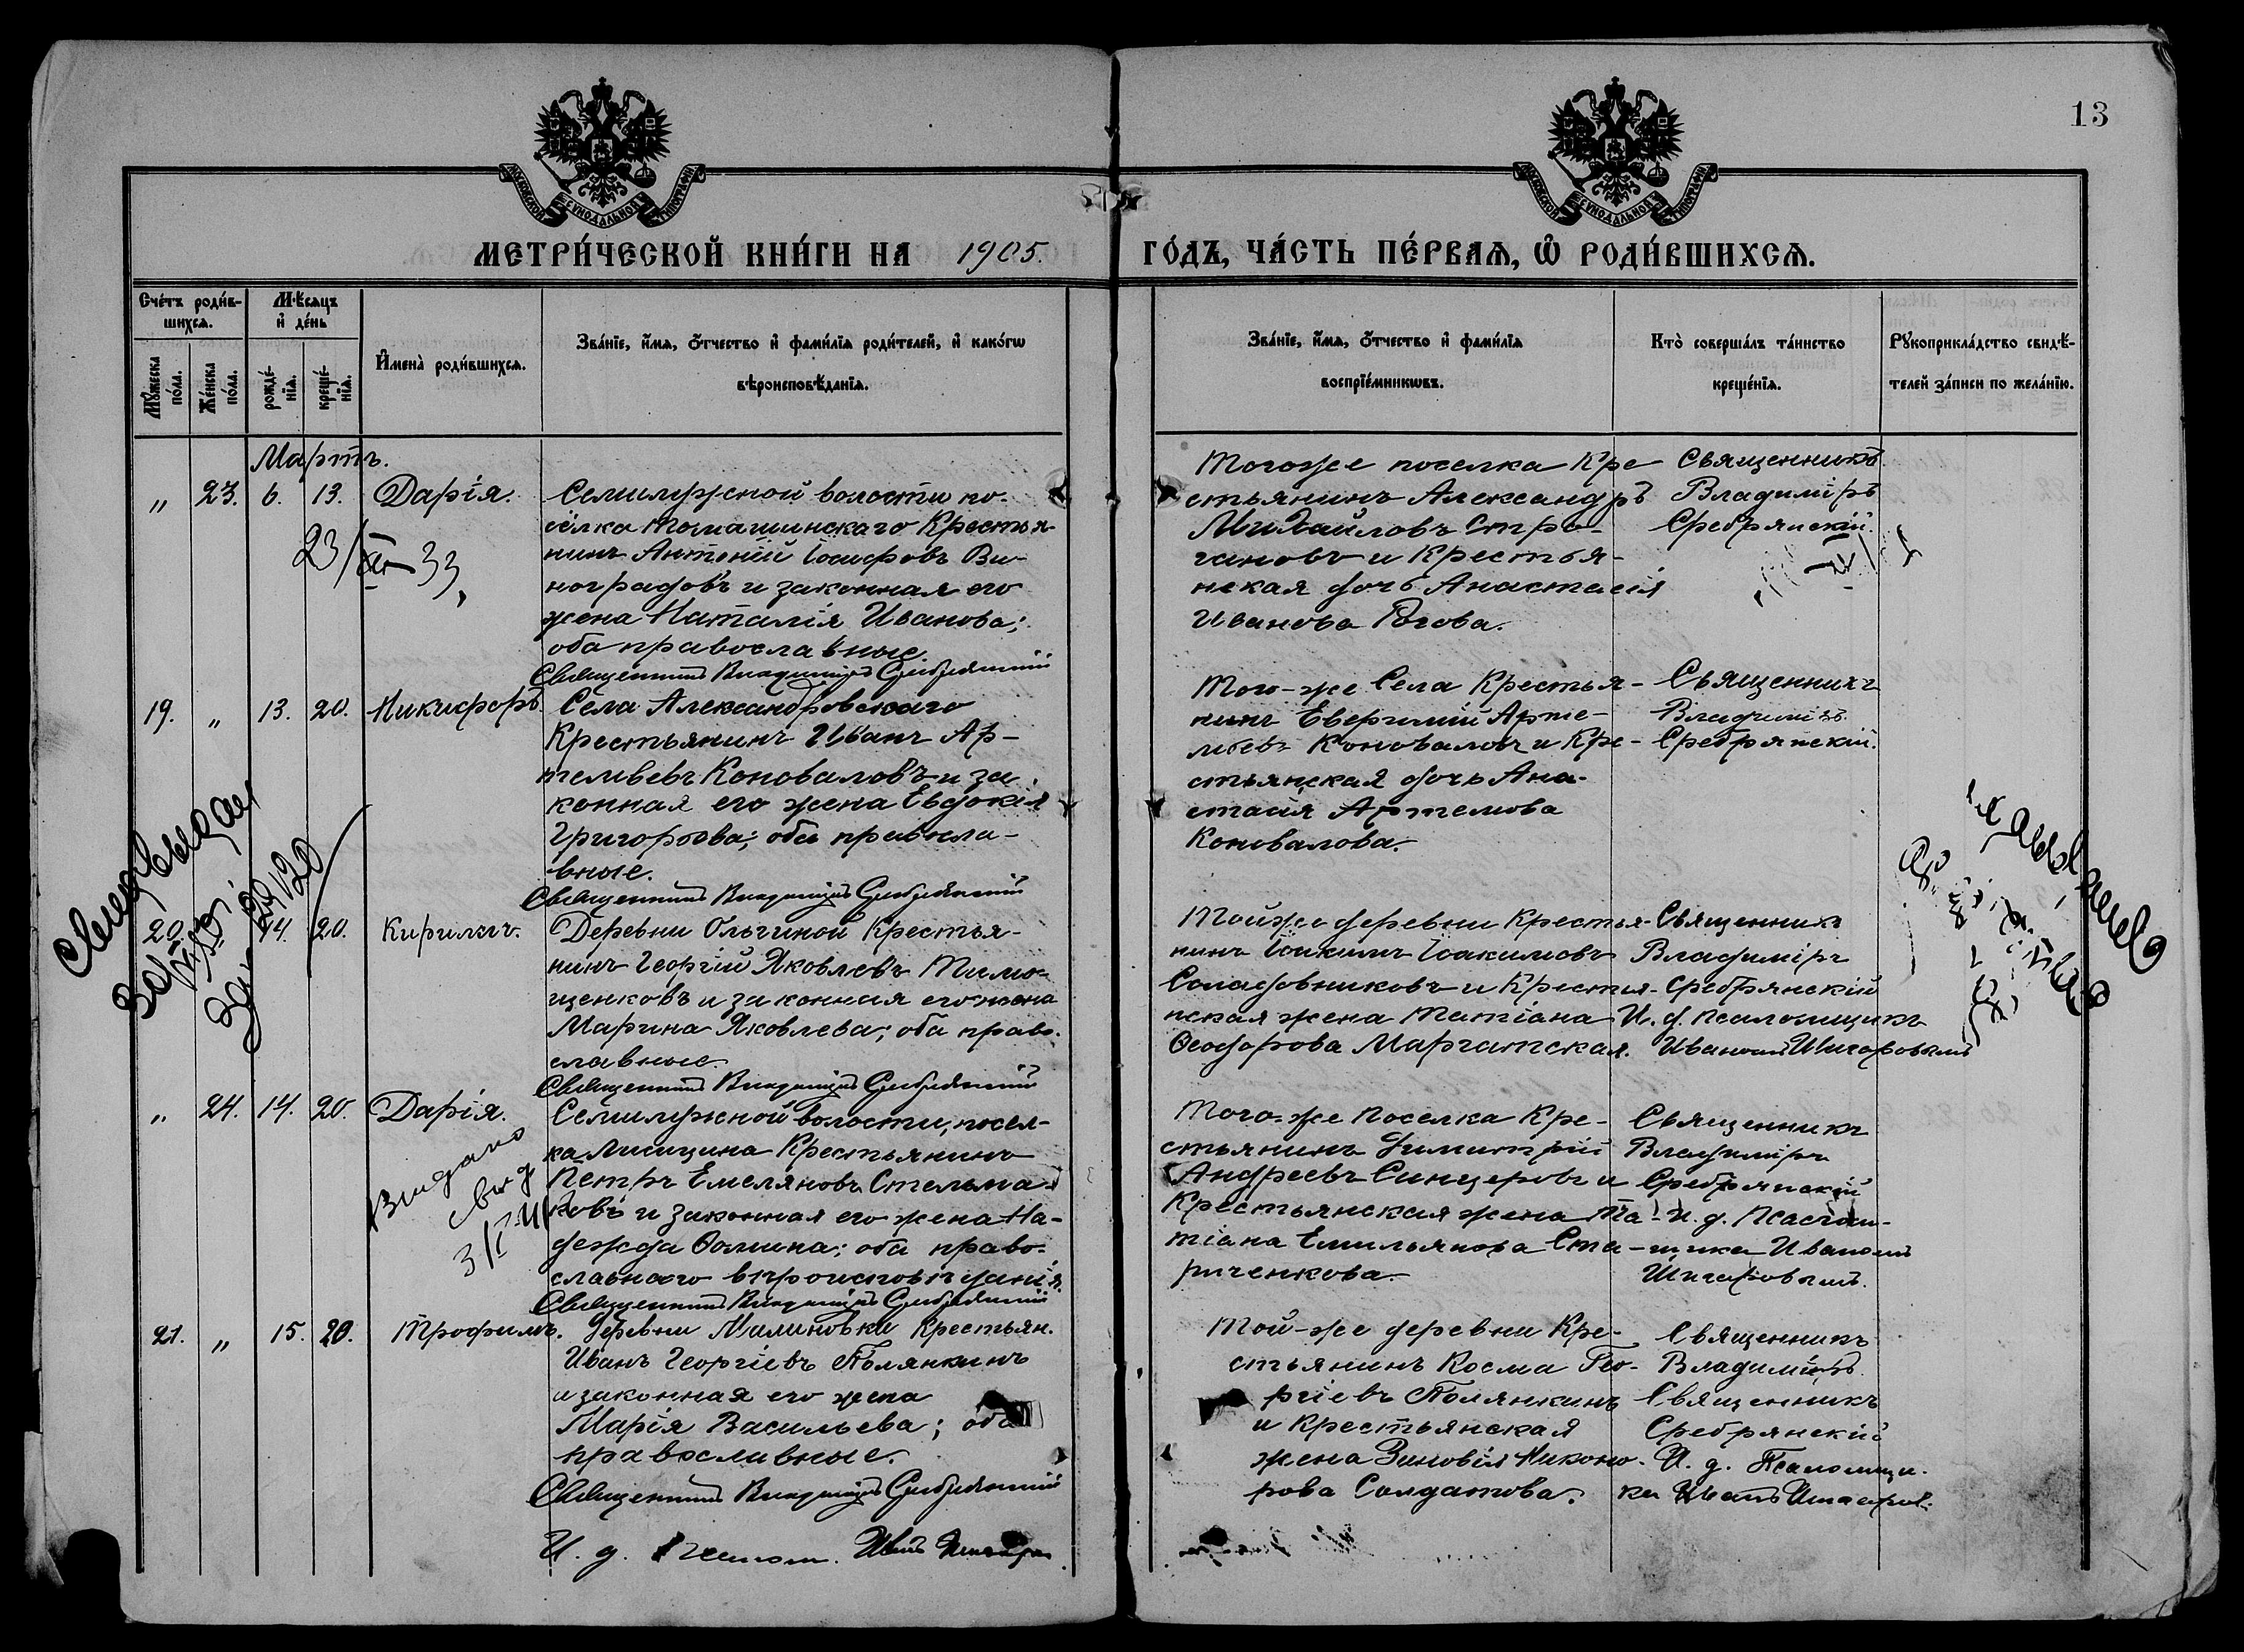 13
МОСКОВСКОЙ СѴНОДАЛЬНОЙ ТИПОГРАФІИ
МОСКОВСКОЙ СѴНОДАЛЬНОЙ ТИПОГРАФІИ
МЕТРИ́ЧЕСКОЙ КНИ́ГИ НА 1905. ГО́ДЪ, ЧА́СТЬ ПЕ́РВАѦ, Ѡ҆ РОДИ́ВШИХСѦ.
Сче́тъ роди́в-
шихсѧ.
Мѣ́сѧцъ
и҆ де́нь
Мꙋ́жеска по́ла.
Же́нска по́ла.
рожде́-
нїѧ.
креще́-
нїѧ.
И҆мена̀ роди́вшихсѧ.
Зва́нїе, и҆́мѧ, ѻ҆́тчество и҆ фами́лїѧ роди́телей, и҆ како́гѡ
вѣроисповѣ́данїѧ.
Зва́нїе, и҆́мѧ, ѻ҆́тчество и҆ фами́лїѧ
воспрїе́мникѡвъ.
Кто̀ соверша́лъ та́инство
креще́нїѧ.
Рꙋкоприкла́дство свидѣ́-
телей за́писи по жела́нїю.
Мартъ.
„ 23. 6. 13. Дарія.
Семилужской волости по-
сёлка Томашинскаго Крестья-
нинъ Антоній Іосифовъ Ви-
ноградовъ и законная его
жена Наталія Иванова;
оба православные.
Священникъ Владиміръ Сребрянскій
Тогоже поселка Кре-
стьянинъ Александръ
Михайловъ Стро-
гановъ и Крестья-
нская дочь Анастасія
Иванова Рогова.
Священникъ
Владиміръ
Сребрянскій.
19. „ 13. 20. Никифоръ.
Села Александровскаго
Крестьянинъ Иванъ Ар-
темьевъ Коноваловъ и за-
конная его жена Евдокія
Григорьева; оба правосла-
вные.
Священникъ Владиміръ Сребрянскій
Того-же Села Крестья-
нинъ Евфимій Арте-
мьевъ Коноваловъ и Кре-
стьянская дочь Ана-
стасія Артемова
Коновалова.
Священникъ
Владиміръ
Сребрянскій.
20. 14. 20. Кириллъ.
Деревни Ольгиной Крестья-
нинъ Георгій Яковлевъ Тимо-
щенковъ и законная его жена
Марина Яковлева; оба право-
славные.
Священникъ Владиміръ Сребрянскій
Тойже деревни Крестья-
нинъ Іоакимъ Іоакимовъ
Соладовниковъ и Крестья-
нская жена Татіана
Ѳеодорова Маргатская.
Священникъ
Владиміръ
Сребрянскій
И. д. псаломщикъ
Иваномъ Шигоровымъ
„ 24. 14. 20. Дарія.
Семилужной волости, посел-
ка Лисицина Крестьянинъ
Петръ Емеляновъ Стельма-
ковъ и законная его жена На-
дежда Ѳомина; оба право-
славнаго вѣроисповѣданія.
Священникъ Владиміръ Сребрянскій
Того-же поселка Кре-
стьянинъ Димитрій
Андреевъ Синцеровъ и
Крестьянская жена Та-
тіана Емильянова Ста-
риченкова.
Священникъ
Владиміръ
Сребрянскій
И. д. Псалом-
щика Иваномъ
Шигоровымъ.
21. „ 15. 20. Трофимъ.
Деревни Малиновки Крестьян.
Иванъ Георгіевъ Полянкинъ
и законная его жена
Марія Васильева; оба
православные.
Священникъ Владиміръ Сребрянскій
Той-же деревни Кре-
стьянинъ Косма Гео-
ргіевъ Полянкинъ
и Крестьянская
жена Зиновія Никоно-
рова Солдатова.
Священникъ
Владиміръ
Священникъ
Сребрянскій
И. д. Псаломщи-
ка
И. д.